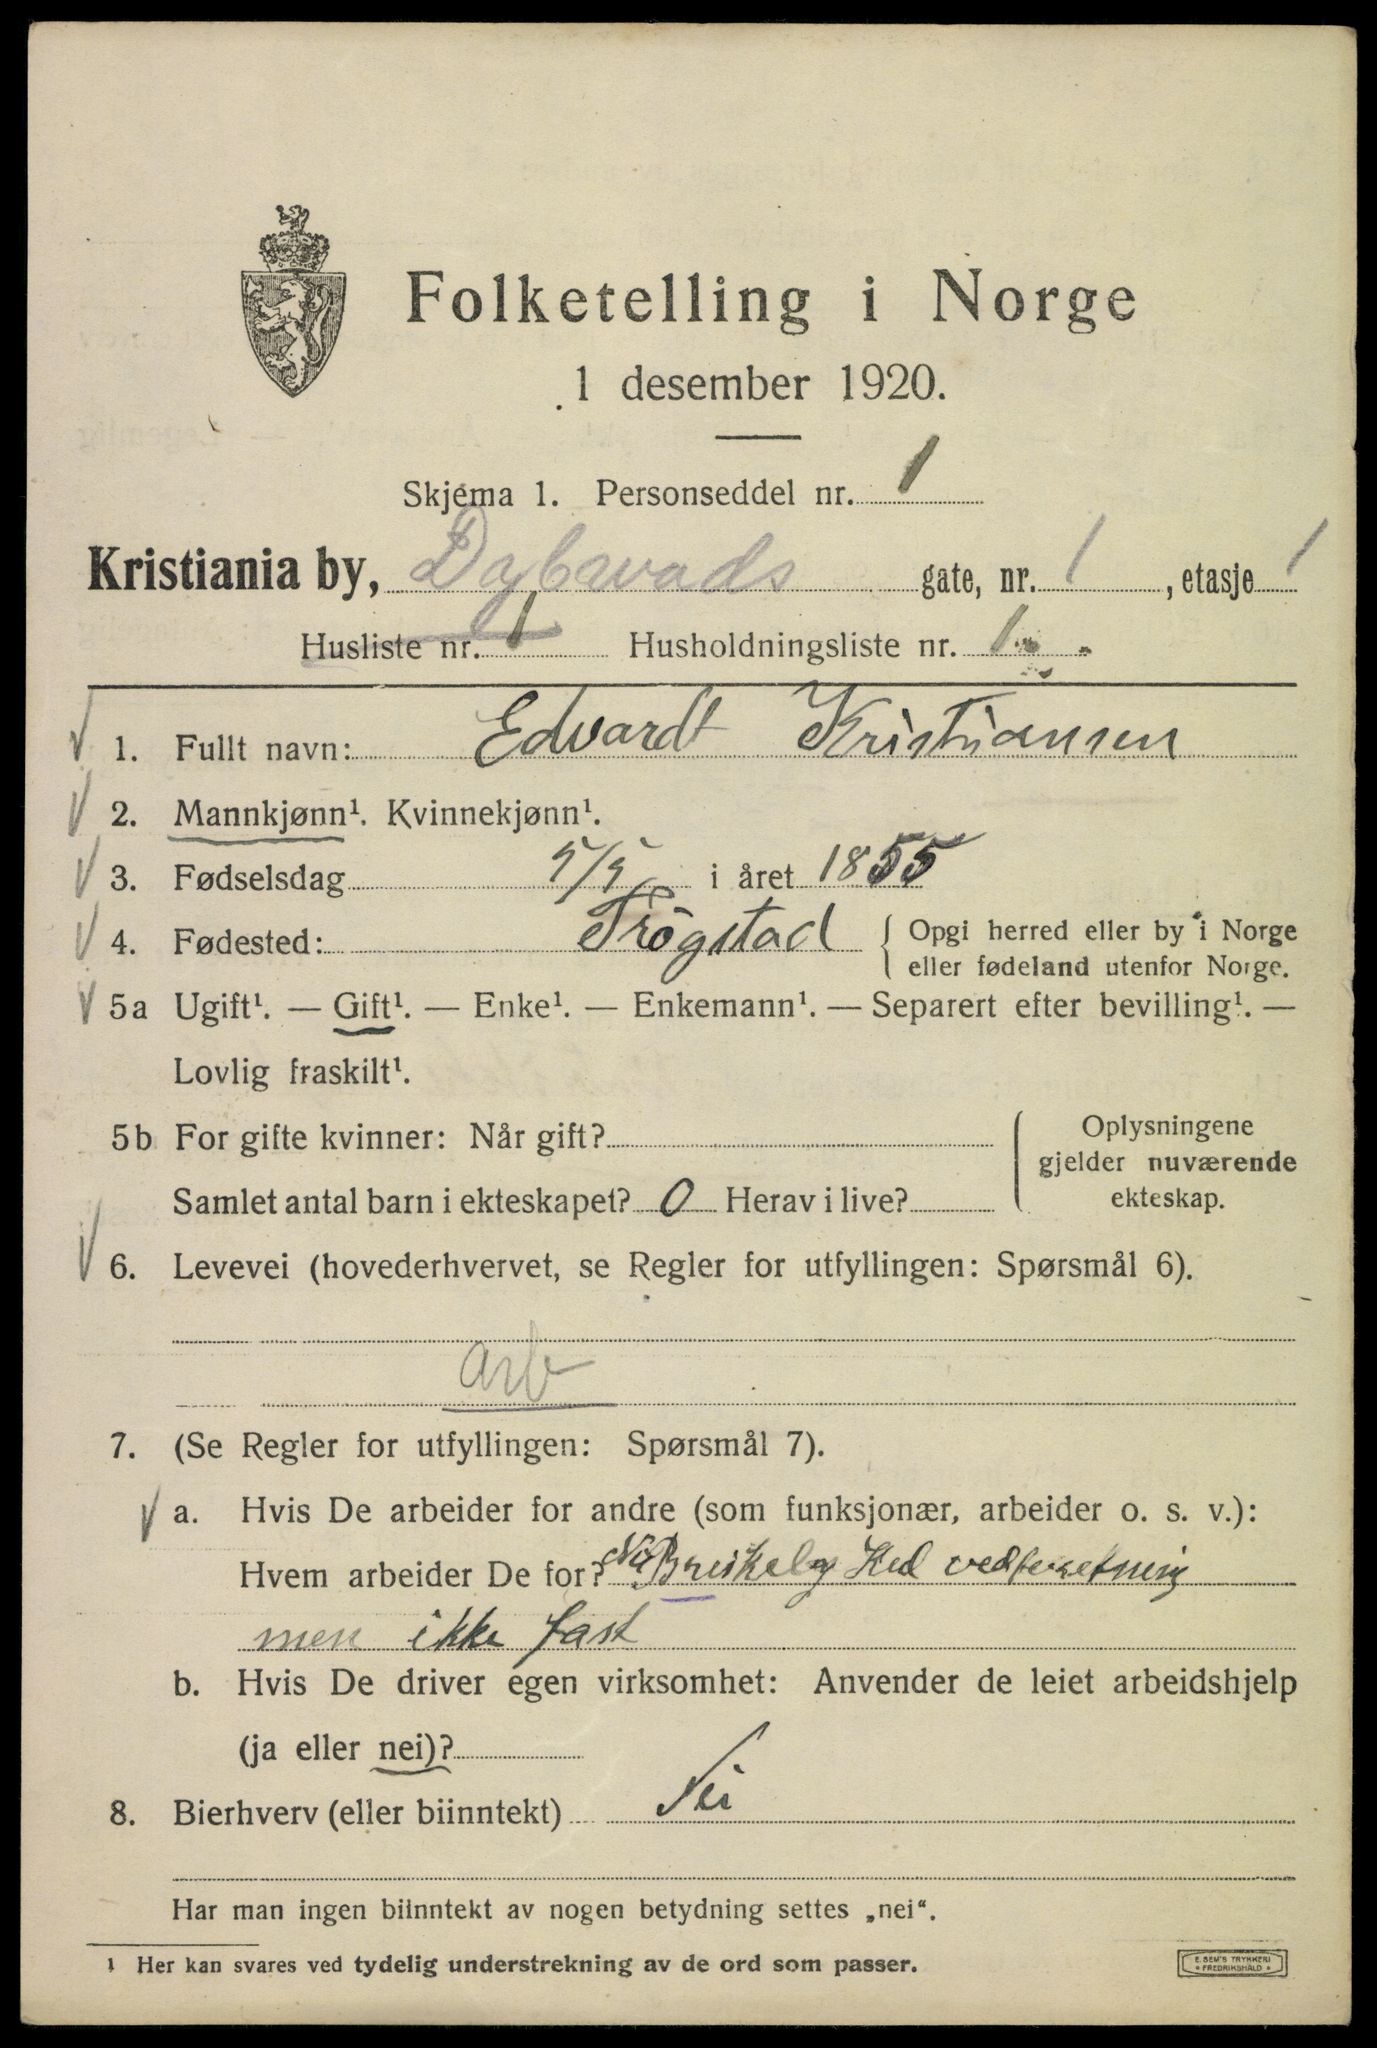 Folketelling i Norge
1 desember 1920.
Skjema 1. Personseddel nr. 1
Kristiania by, Dybwads gate, nr. 1, etasje 1
Husliste nr. 1 Husholdningsliste nr. 1
1. Fullt navn: Edvardt Kristiansen
2. Mannkjønn¹. Kvinnekjønn¹.
3. Fødselsdag 5/5 i året 1855
4. Fødested: Trögstad { Opgi herred eller by i Norge
eller fødeland utenfor Norge.
5a Ugift¹. — Gift¹. — Enke¹. — Enkemann¹. — Separert efter bevilling¹. —
Lovlig fraskilt¹.
5b For gifte kvinner: Når gift? { Oplysningene
gjelder nuværende
Samlet antal barn i ekteskapet? 0 Herav i live?
ekteskap.
6. Levevei (hovederhvervet, se Regler for utfyllingen: Spørsmål 6).
arb
7. (Se Regler for utfyllingen: Spørsmål 7).
a. Hvis De arbeider for andre (som funksjonær, arbeider o. s. v.):
Hvem arbeider De for?
men ikke fast
b. Hvis De driver egen virksomhet: Anvender de leiet arbeidshjelp
(ja eller nei)?
8. Bierhverv (eller biinntekt) Nei
Har man ingen biinntekt av nogen betydning settes „nei“.
¹ Her kan svares ved tydelig understrekning av de ord som passer.
E. SEM'S TRYKKERI
* FREDRIKSHALD *